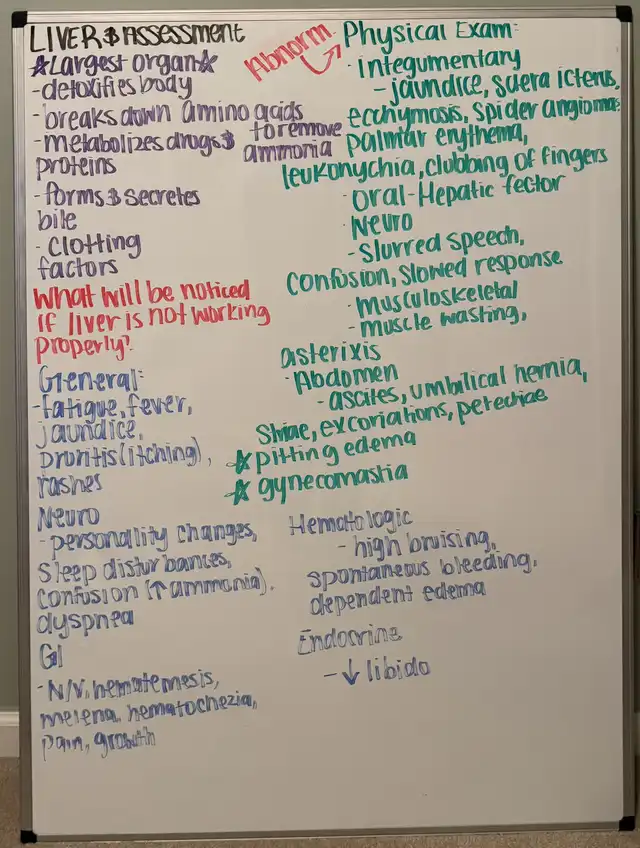 LIVER & ASSESSMENT
☆Largest organ☆
-detoxifies body
-breaks down amino acids
-metabolizes drugs & to remove
proteins ammonia
-forms & secretes
bile
- Clotting
factors
What will be noticed
if liver is not working
properly?
General:
-fatigue, fever,
jaundice,
pruritis (itching),
rashes
Neuro
- personality changes,
sleep disturbances,
confusion (↑ ammonia).
dyspnea
GI
- N/V, hematemesis,
melena, hematochezia,
pain, growth
Abnorm. Physical Exam:
· integumentary
- jaundice, sclera icterus,
ecchymosis, spider angiomas
palmar erythema,
leukonychia, clubbing of fingers
· Oral-Hepatic fector
· Neuro
- Slurred speech,
confusion, slowed response
· Musculoskeletal
- muscle wasting,
asterixis
· Abdomen
- ascites, umbilical hernia,
Striae, excoriations, petechiae
☆ pitting edema
☆ gynecomastia
Hematologic
- high bruising,
spontaneous bleeding,
dependent edema
Endocrine
- ↓ libido